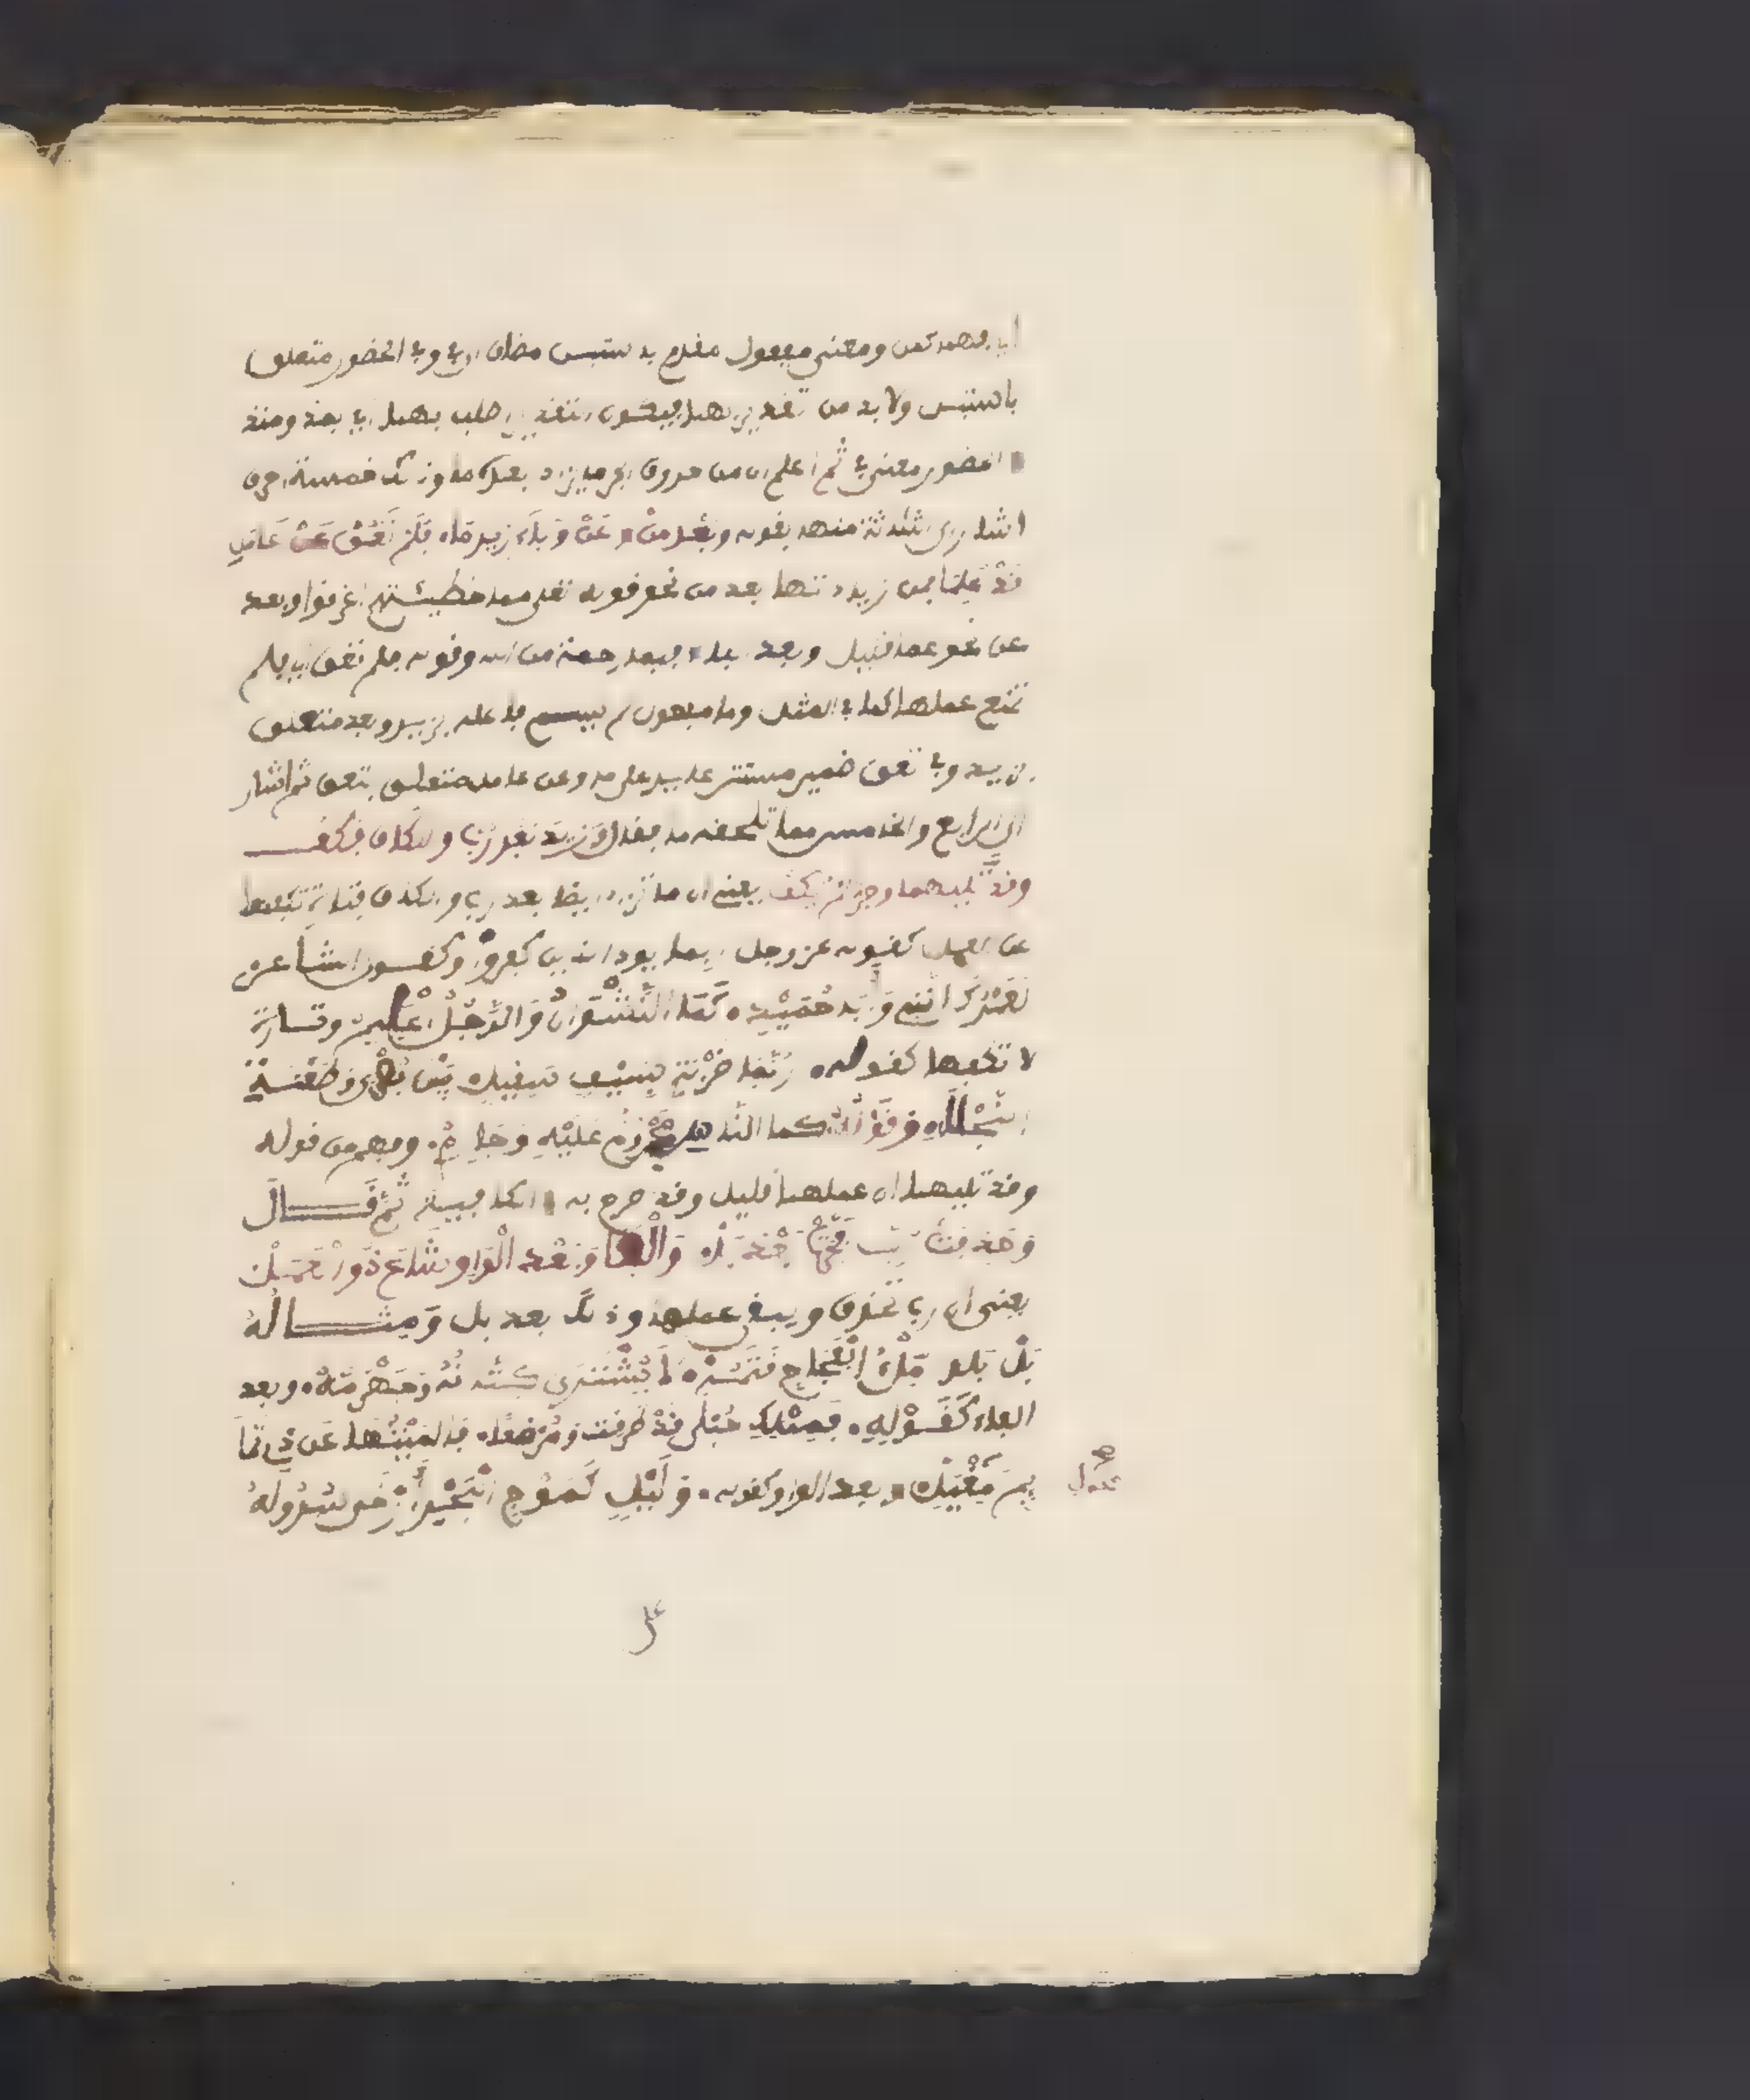 اي فهما كمن ومعنى مفعول مقدم باستبن مضاف الى في وفي الحضور متعلق
باستبن ولا بد من تقدير بهما فيكون التقدير اطلب بهما اي بمذ ومنذ
الحضور معنى في ثم اعلم ان من حروف الجر ما يزاد بعده ما وذلك خمسة احرف
اشار الى ثلاثة منها بقوله وبعد من وعن وباء زيد ما، فلم تعق عن عمل
قد علما فمن زيادتها بعد من نحو قوله تعلى مما خطيئتهم اغرقوا وبعد
عن نحو عما قليل وبعد باء فبما رحمة من الله وقوله فلم تعق اي فلم
تمنع عملها كما في المثل وما مفعول لم يسم فاعله بزيد وبعد متعلق
بزيد وفي تعق ضمير مستتر عايد على ما وعن عمل متعلق بتعق ثم اشار
الى الرابع والخامس مما تلحقه ما فقال وزيد بعد رب والكاف فكف
وقد تليهما وجر لم يكف يعني ان ما تزاد ايضا بعد رب والكاف فتارة تكفهما
عن العمل كقوله عز وجل ربما يود الذين كفروا وكقول الشاعر
لعمرك انني وابا حميد، كما النشوان والرجل الحليم وتارة
لا تكفها كقوله، ربما ضربة بسيف صقيل، بين بصرى وطعنة
نجلاء وقوله كما الناس مجروم عليه وجارم، وفهم من قوله
وقد تليهما ان عملهما قليل وقد صرح به في الكافية ثم قال
وحذفت رب فجرت بعد بل، والفا وبعد الواو شاع ذا العمل
يعني ان رب تحذف ويبقى عملها وذلك بعد بل ومثاله
بل بلد ملء الفجاج قتمه، لا يشترى كتانه وجهرمه، وبعد
الفاء كقوله، فمثلك حبلى قد طرقت ومرضعا، فالهيتها عن ذي تما
يم مغيل، وبعد الواو كقوله، وليل كموج البحر ارخى سدوله
محول
علي